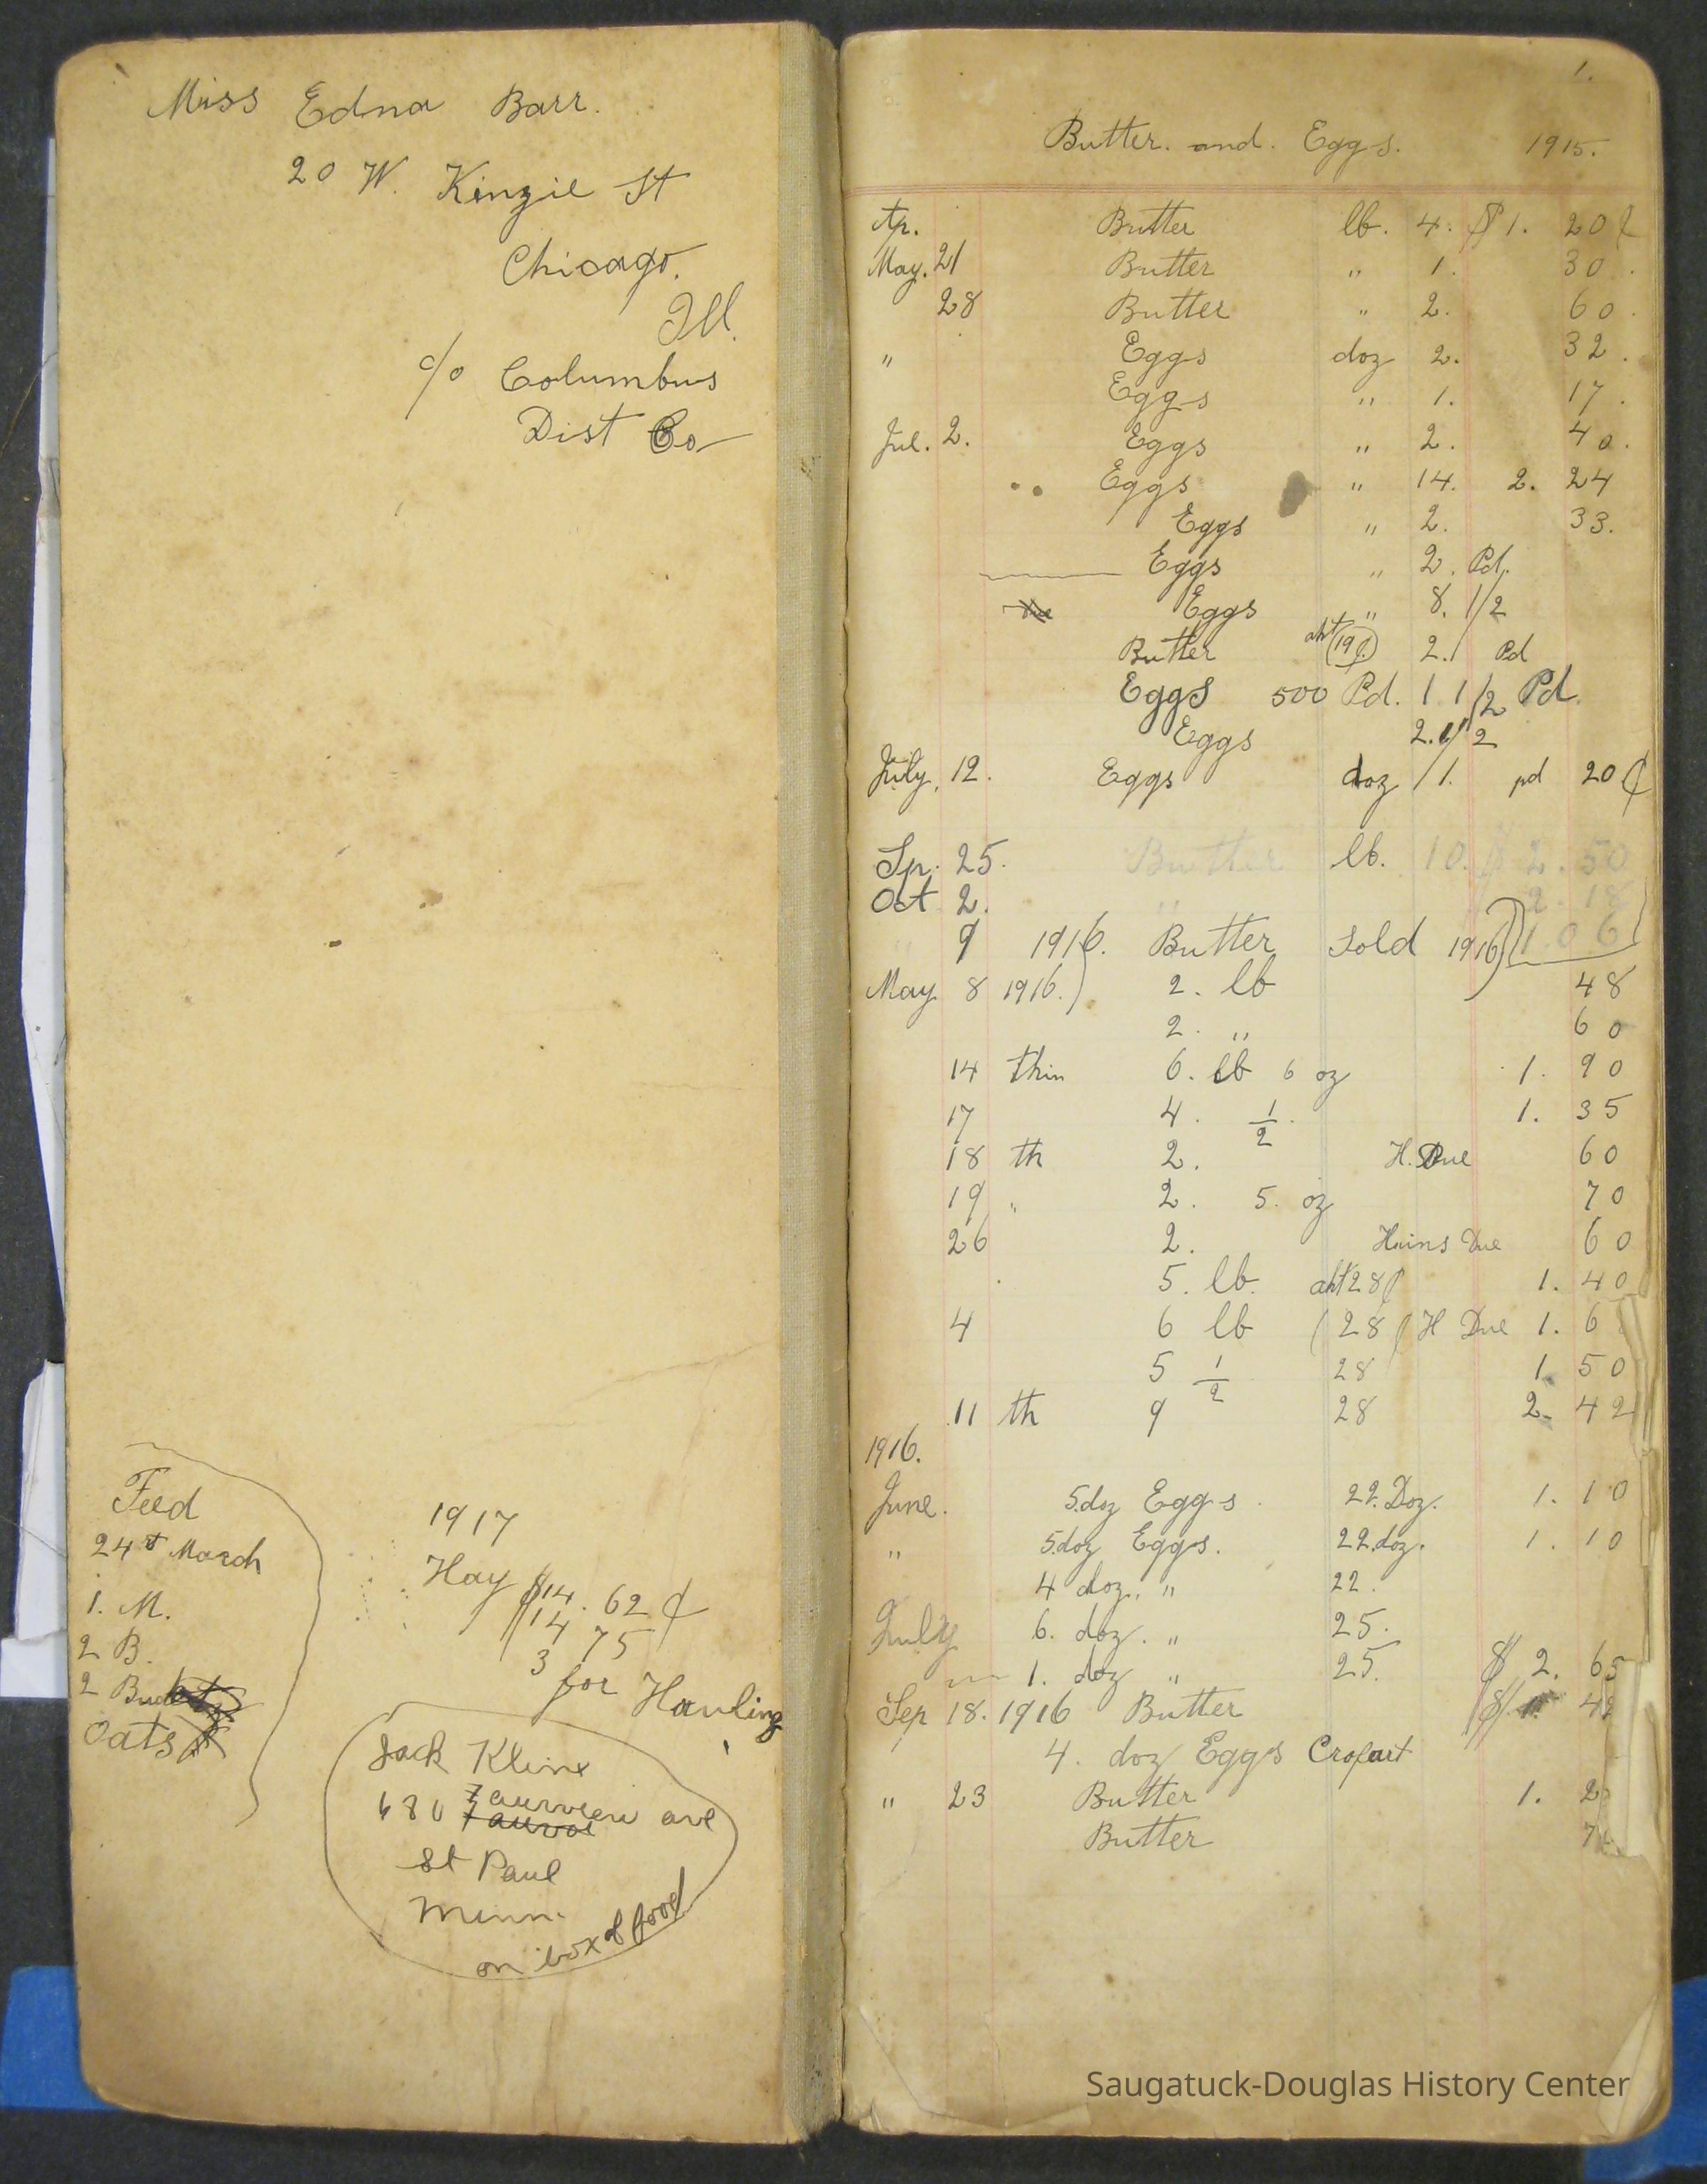 Miss Edna Barr.
20 W. Kinzie St
Chicago.
Ill.
c/o Columbus
Dist Co
Feed
24st March
1. M.
2 B.
2
Oats
1917
Hay $14. 62 ¢
14 75
3
for Hauling
Jack Kline
680 ave
St Paul
Minn.
on box of food
1.
Butter. and. Eggs. 1915.
Ap. Butter lb. 4. $ 1. 20 ¢
May. 21 Butter " 1. 30.
28 Butter " 2. 60.
" Eggs doz 2. 32.
Eggs " 1. 17.
Jul. 2. Eggs " 2. 40.
Eggs " 14. 2. 24
Eggs " 2. 33.
Eggs " 2. Pd.
Eggs " 8. 1/2
Butter aht (19¢) 2. Pd
Eggs 500 Pd. 1 1/2 Pd.
Eggs 2. 1/2
July, 12. Eggs doz 1. pd 20 ¢
Sp. 25. Butter lb. 10. $ 2. 50
Oct 2. " 2. 18
" 9 1916. Butter Sold 1916) 1. 06
May 8 1916.) 2. lb 48
2. " 60
14 thin 6. lb 6 oz 1. 90
17 4. 1/2 1. 35
18 th 2. H. Due 60
19 " 2. 5. oz 70
26 2. Hains Due 60
5. lb. aht 28¢ 1. 40
4 6 lb (28¢ H Due 1. 6
5 1/2 28 1. 50
11 th 9 28 2. 42
1916.
June. 5.doz Eggs. 22. Doz. 1. 10
" 5.doz Eggs. 22.doz. 1. 10
4 doz. " 22.
July 6. doz. " 25.
1. doz " 25. $ 2. 65
Sep 18. 1916 Butter $ 1. 42
4. doz Eggs
" 23 Butter 1. 2
Butter 7
Saugatuck-Douglas History Center